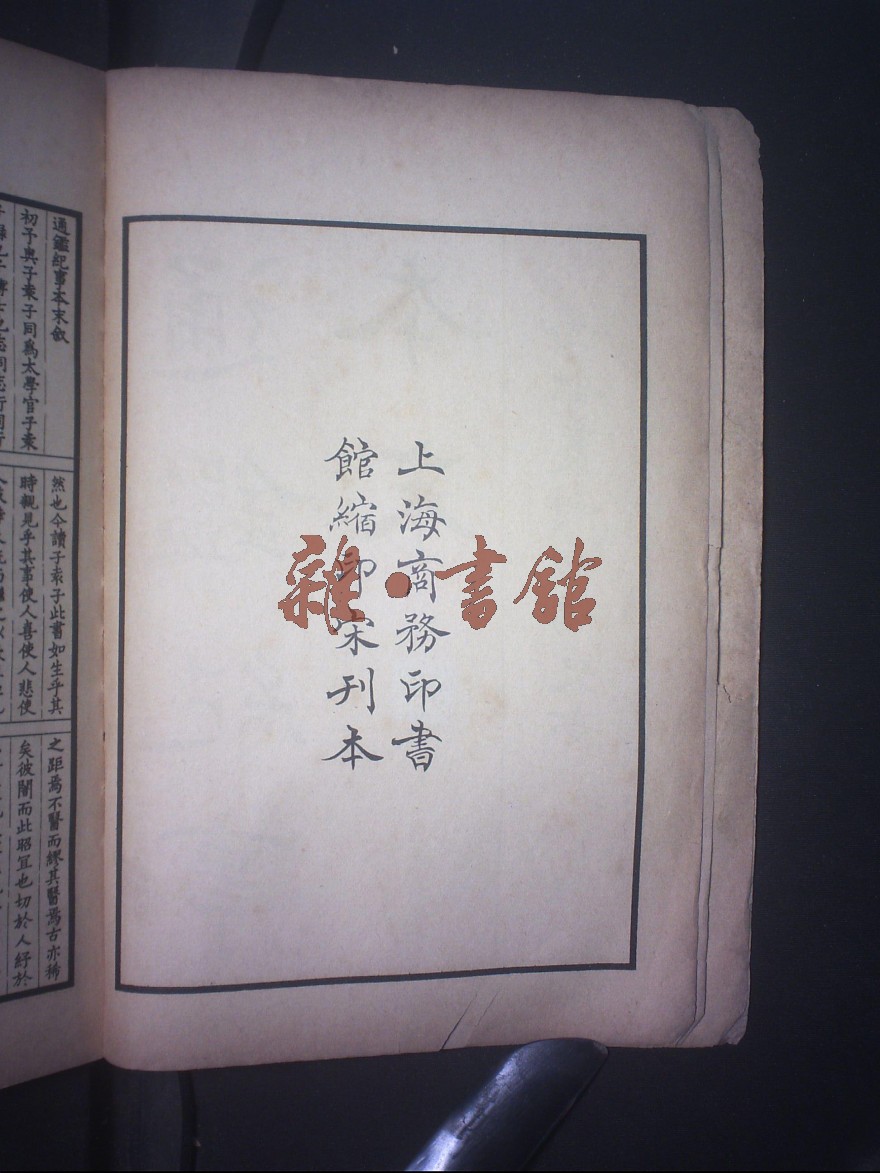 上海商務印書
館縮印宋刊本
雜·書館
通鑑紀事本末敘
初予與子袁子同爲太學官子袁
然也今讀子袁子此書如生乎其
時親見乎其事使人喜使人悲使
之距焉不醫而繆其醫焉古亦稀
矣彼闇而此昭宜也切於人紓於